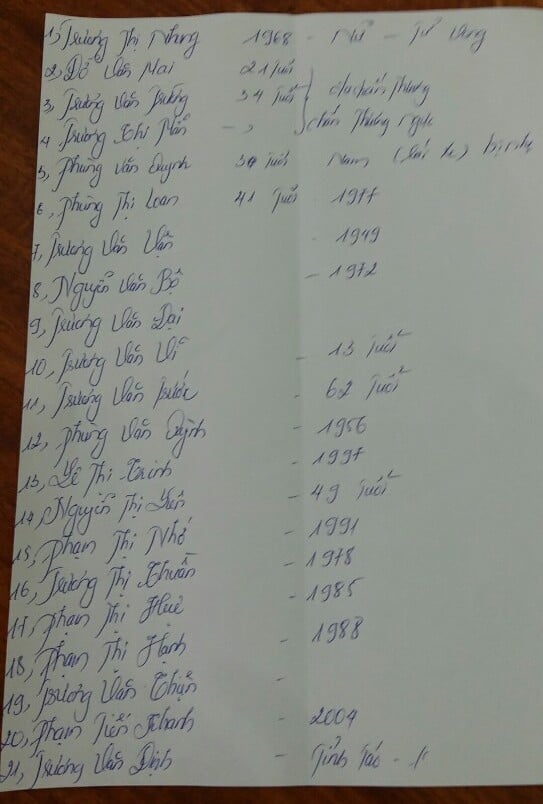 1, Trương Thị Nhung 1968 - Nữ - Tử vong
2, Đỗ Văn Mai 21 tuổi
3, Trương Văn Trường 34 tuổi đa chấn thương
4 Trương Thị Mẫn - chấn thương ngực
5, Phùng Văn Quỳnh tuổi Nam (lái xe) bị nhẹ
6, Phùng Thị Loan 41 tuổi - 1977
7, Trương Văn Vận - 1949
8, Nguyễn Văn Bộ - 1972
9, Trương Văn Đại
10, Trương Văn Vĩ - 13 tuổi
11, Trương Văn Trước - 62 tuổi
12, Phùng Văn Quỳnh - 1956
13, Lê Thị Trinh - 1997
14, Nguyễn Thị Yên - 49 tuổi
15, Phạm Thị Nhớ - 1991
16, Trương Thị Thuần - 1978
17, Phạm Thị Huệ - 1985
18, Phạm Thị Hạnh - 1988
19, Trương Văn Thận -
20, Phạm Tiến Thanh - 2004
21, Trương Văn Định - Tỉnh táo -